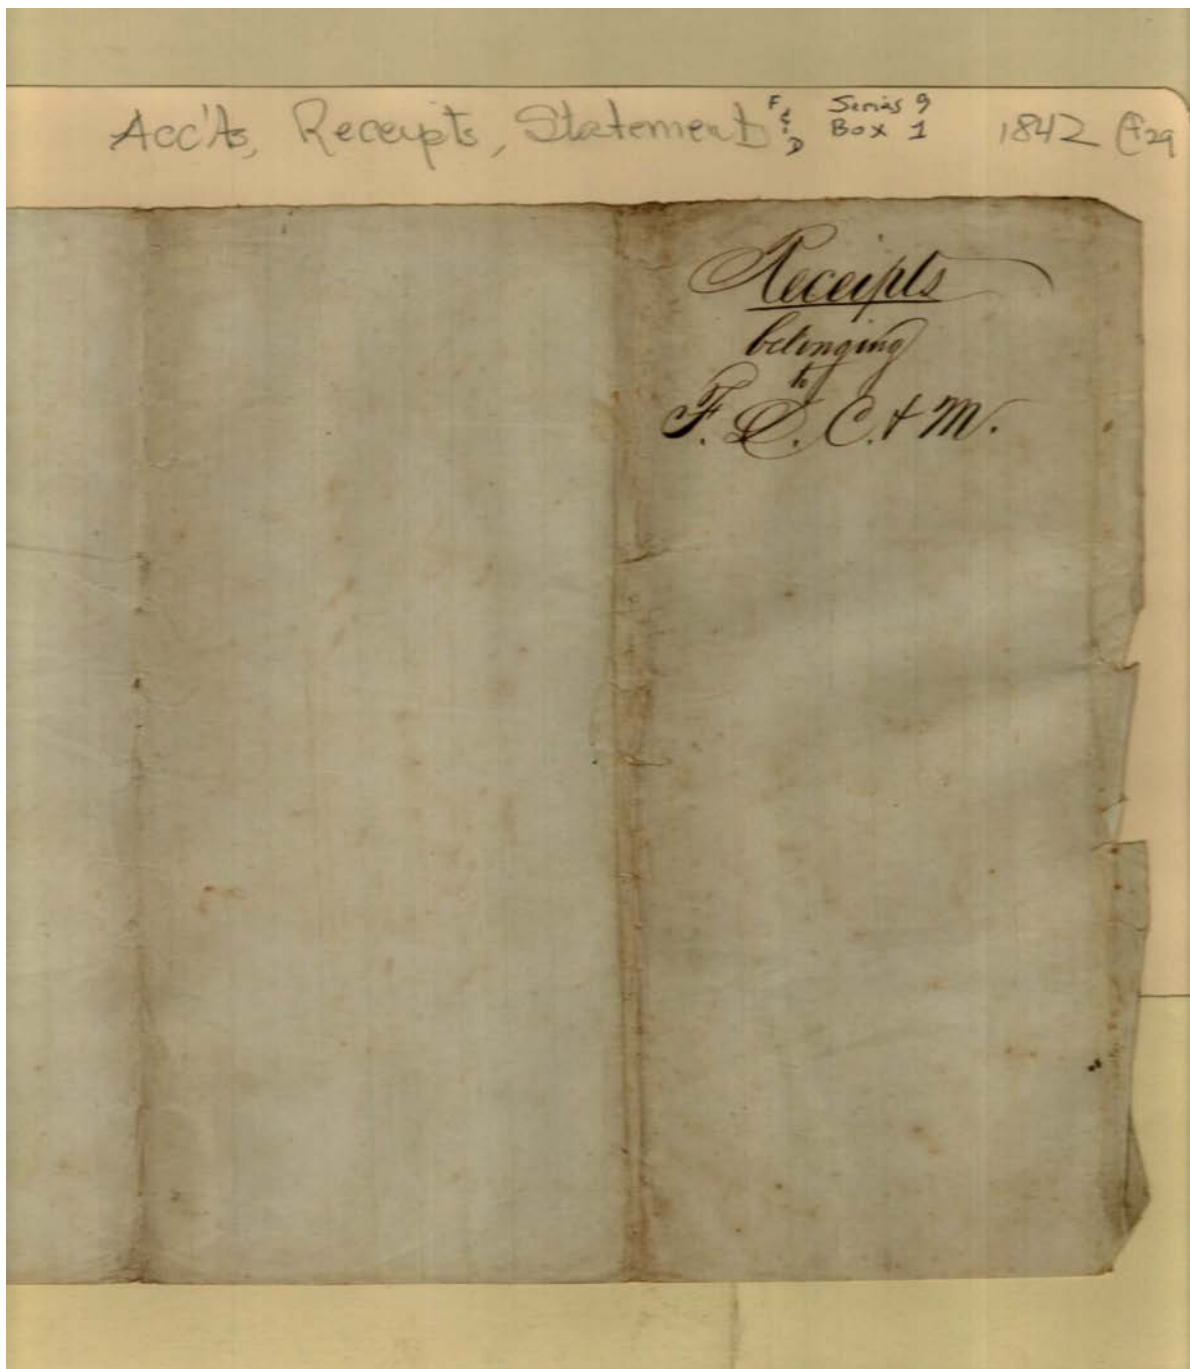 Acc'ts, Receipts, Statement F & D Series 9 Box 1 1842 F29
Receipts
belonging
to
F. D. C. & M.